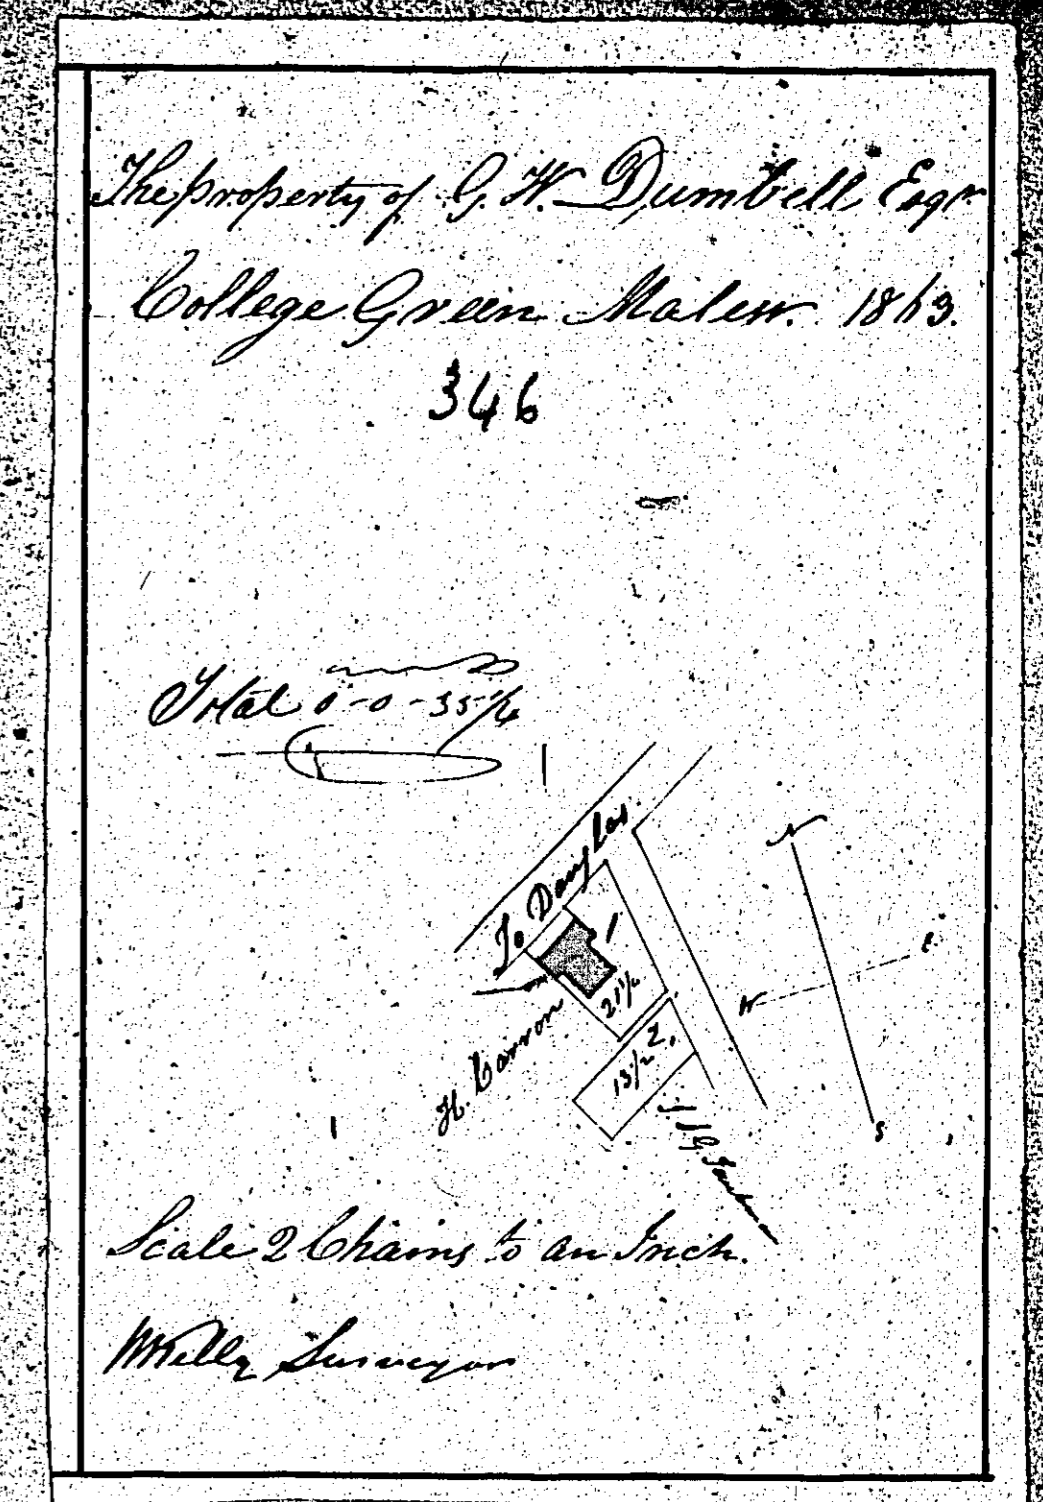 The property of G. W. Dumbell Esqr
College Green Malew. 1863.
346
Total 0-0-35 1/4
To Douglas.
1
21 1/2
H. Carron
2.
13 1/2
N
E
W
S
Scale 2 Chains to an Inch.
WKelly Surveyor